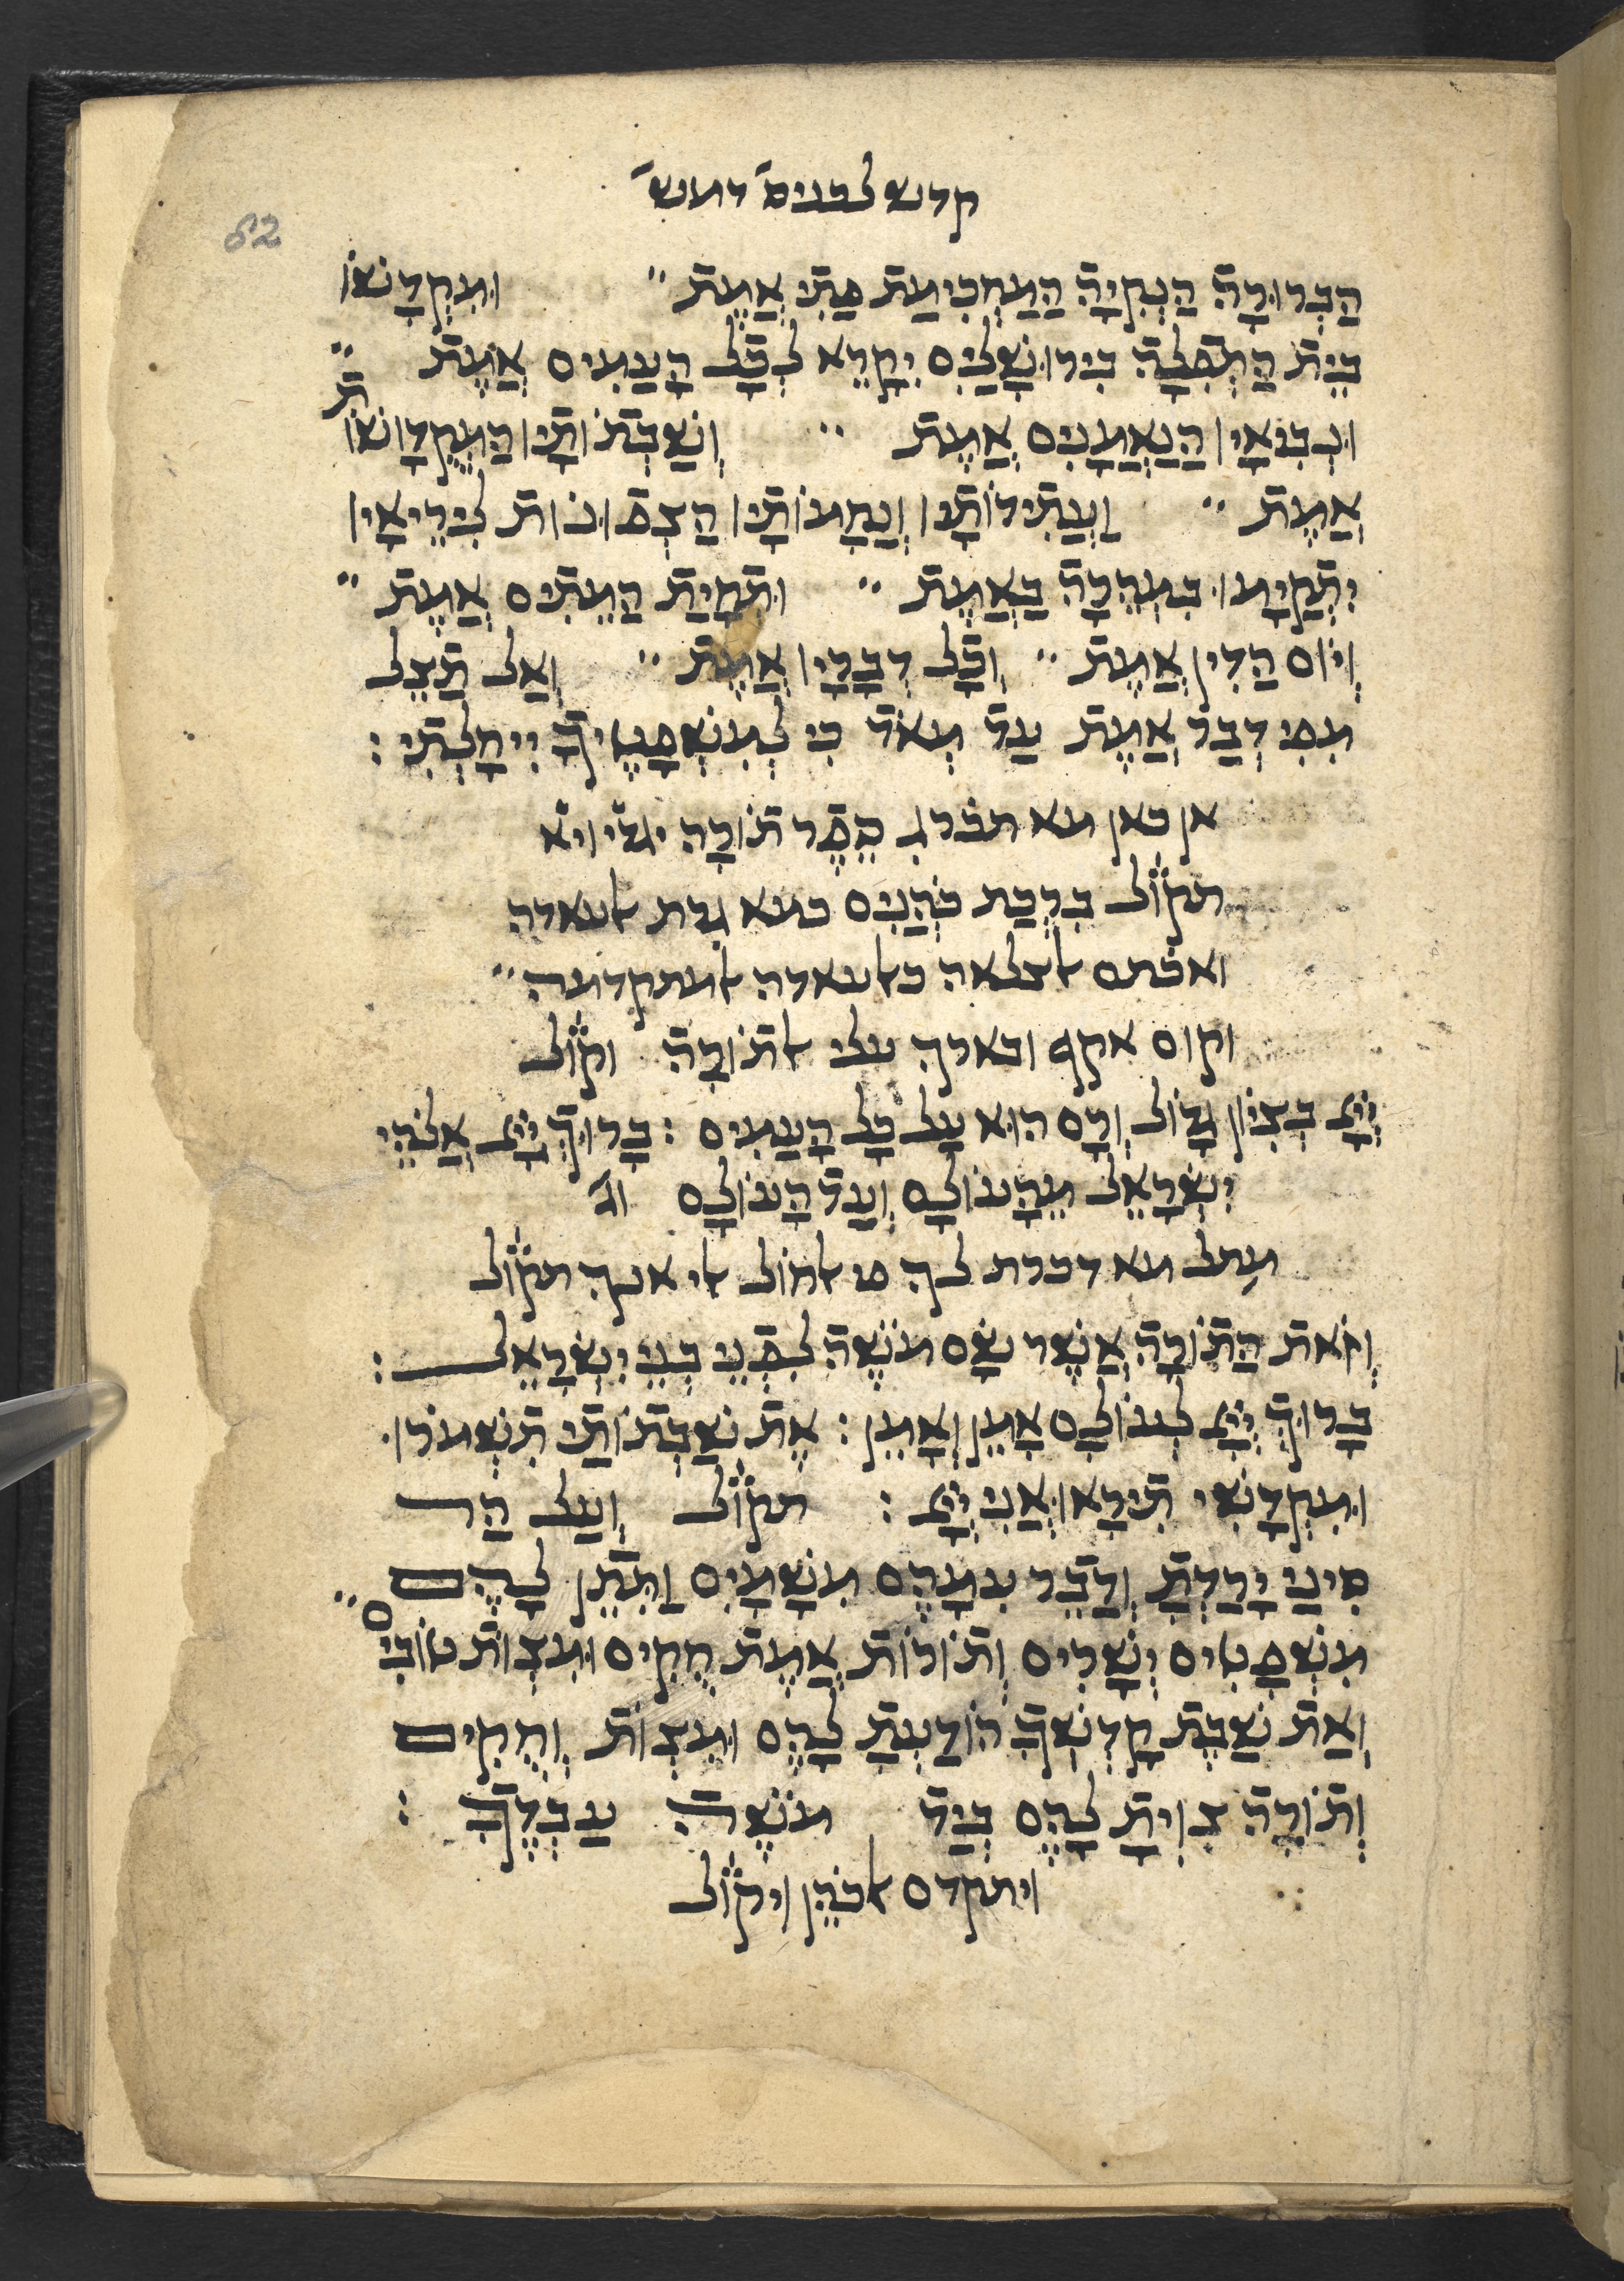 קדש לבניםֿ דמשֿ
62
הַבְּרוּרָהֿ הַנְּקִיָּהֿ הַמַּחְכִּימַת פֵּתִי אֲמֶת ״ וּמִקְדָּשׁוֹ
בֵּית הַתְּפִלָּהֿ בִּירוּשָׁלַיִם יִקָּרֵא לְכָל הָעַמִּים אֱמֶת ״
וּנְבִיאָיו הַנֶּאֱמָנִים אֱמֶת ״ וְשַׁבְּתוֹתָיו הַמְקֻדָּשׁוֹת
אֱמֶת ״ וַעֲתִידוֹתָיו וְנֶחָמוֹתָיו הַצְּפוּנוֹת לִירֵיאָיו
יִתְקַיָּמוּ בִּמְהֵרָה בֶּאֱמֶת ״ וּתְחִיַּת הַמֵּתִים אֱמֶת ״
וְיוֹם הַדִּין אֱמֶת ״ וְכָל דְּבָרָיו אֱמֶת ״ וְאַל תַּצֵּל
מִפִּי דְבַר אֱמֶת עַד מְאֹד כִּי לְמִשְׁפָּטֶיךָ יִיחָלְתִּי :
אן כאן מא תכׄרג סֵפֶר תוֹרָה יגׄזי ויׄא
תקׄוׄל בִּרְכַּת כֹּהֲנִים כמא גרת אלעאדה
ואכׄתם אלצלאה כאלעאדה אלמתקדמה ״
וקום אקף ובארך עלי אלתּוֹרָה וקׄוׄל
יְיָ בְּצִיּוֹן גָּדוֹל וְרָם הוּא עַל כָּל הָעַמִּים : בָּרוּךְ יְיָ אֱלֹהֵי
יִשְׂרָאֵל מֵהָעוֹלָם וְעַד הָעוֹלָם וגֿ
מתׄל מא דכרת לך פי אלאול אלי אנך תקׄוׄל
וְזֹאת הַתּוֹרָה אֲשֶׁר שָׂם מֹשֶׁה לִפְנֵי בְּנֵי יִשְׂרָאֵל :
בָּרוּךְ יְיָ לְעוֹלָם אָמֵן וְאָמֵן : אֶת שַׁבְּתוֹתַי תִּשְׁמֹרוּ
וּמִקְדָּשִׁי תִּירָאוּ אֲנִי יְיָ : תקׄוׄל וְעַל הַר
סִינַי יָרַדְתָּ וְדַבֵּר עִמָּהֶם מִשָּׁמָיִם וַתִּתֵּן לָהֶם
מִשְׁפָּטִים יְשָׁרִים וְתוֹרוֹת אֱמֶת חֻקִּים וּמִצְוֹת טוֹבִים ״
וְאֶת שַׁבַּת קָדְשְׁךָ הוֹדַעְתָּ לָהֶם וּמִצְוֹת וְחֻקִּים
וְתוֹרָה צִוִּיתָ לָהֶם בְּיַד מֹשֶׁה עַבְדֶּךָ :
ויתקדם אלכֹּהֵן ויקׄוׄל